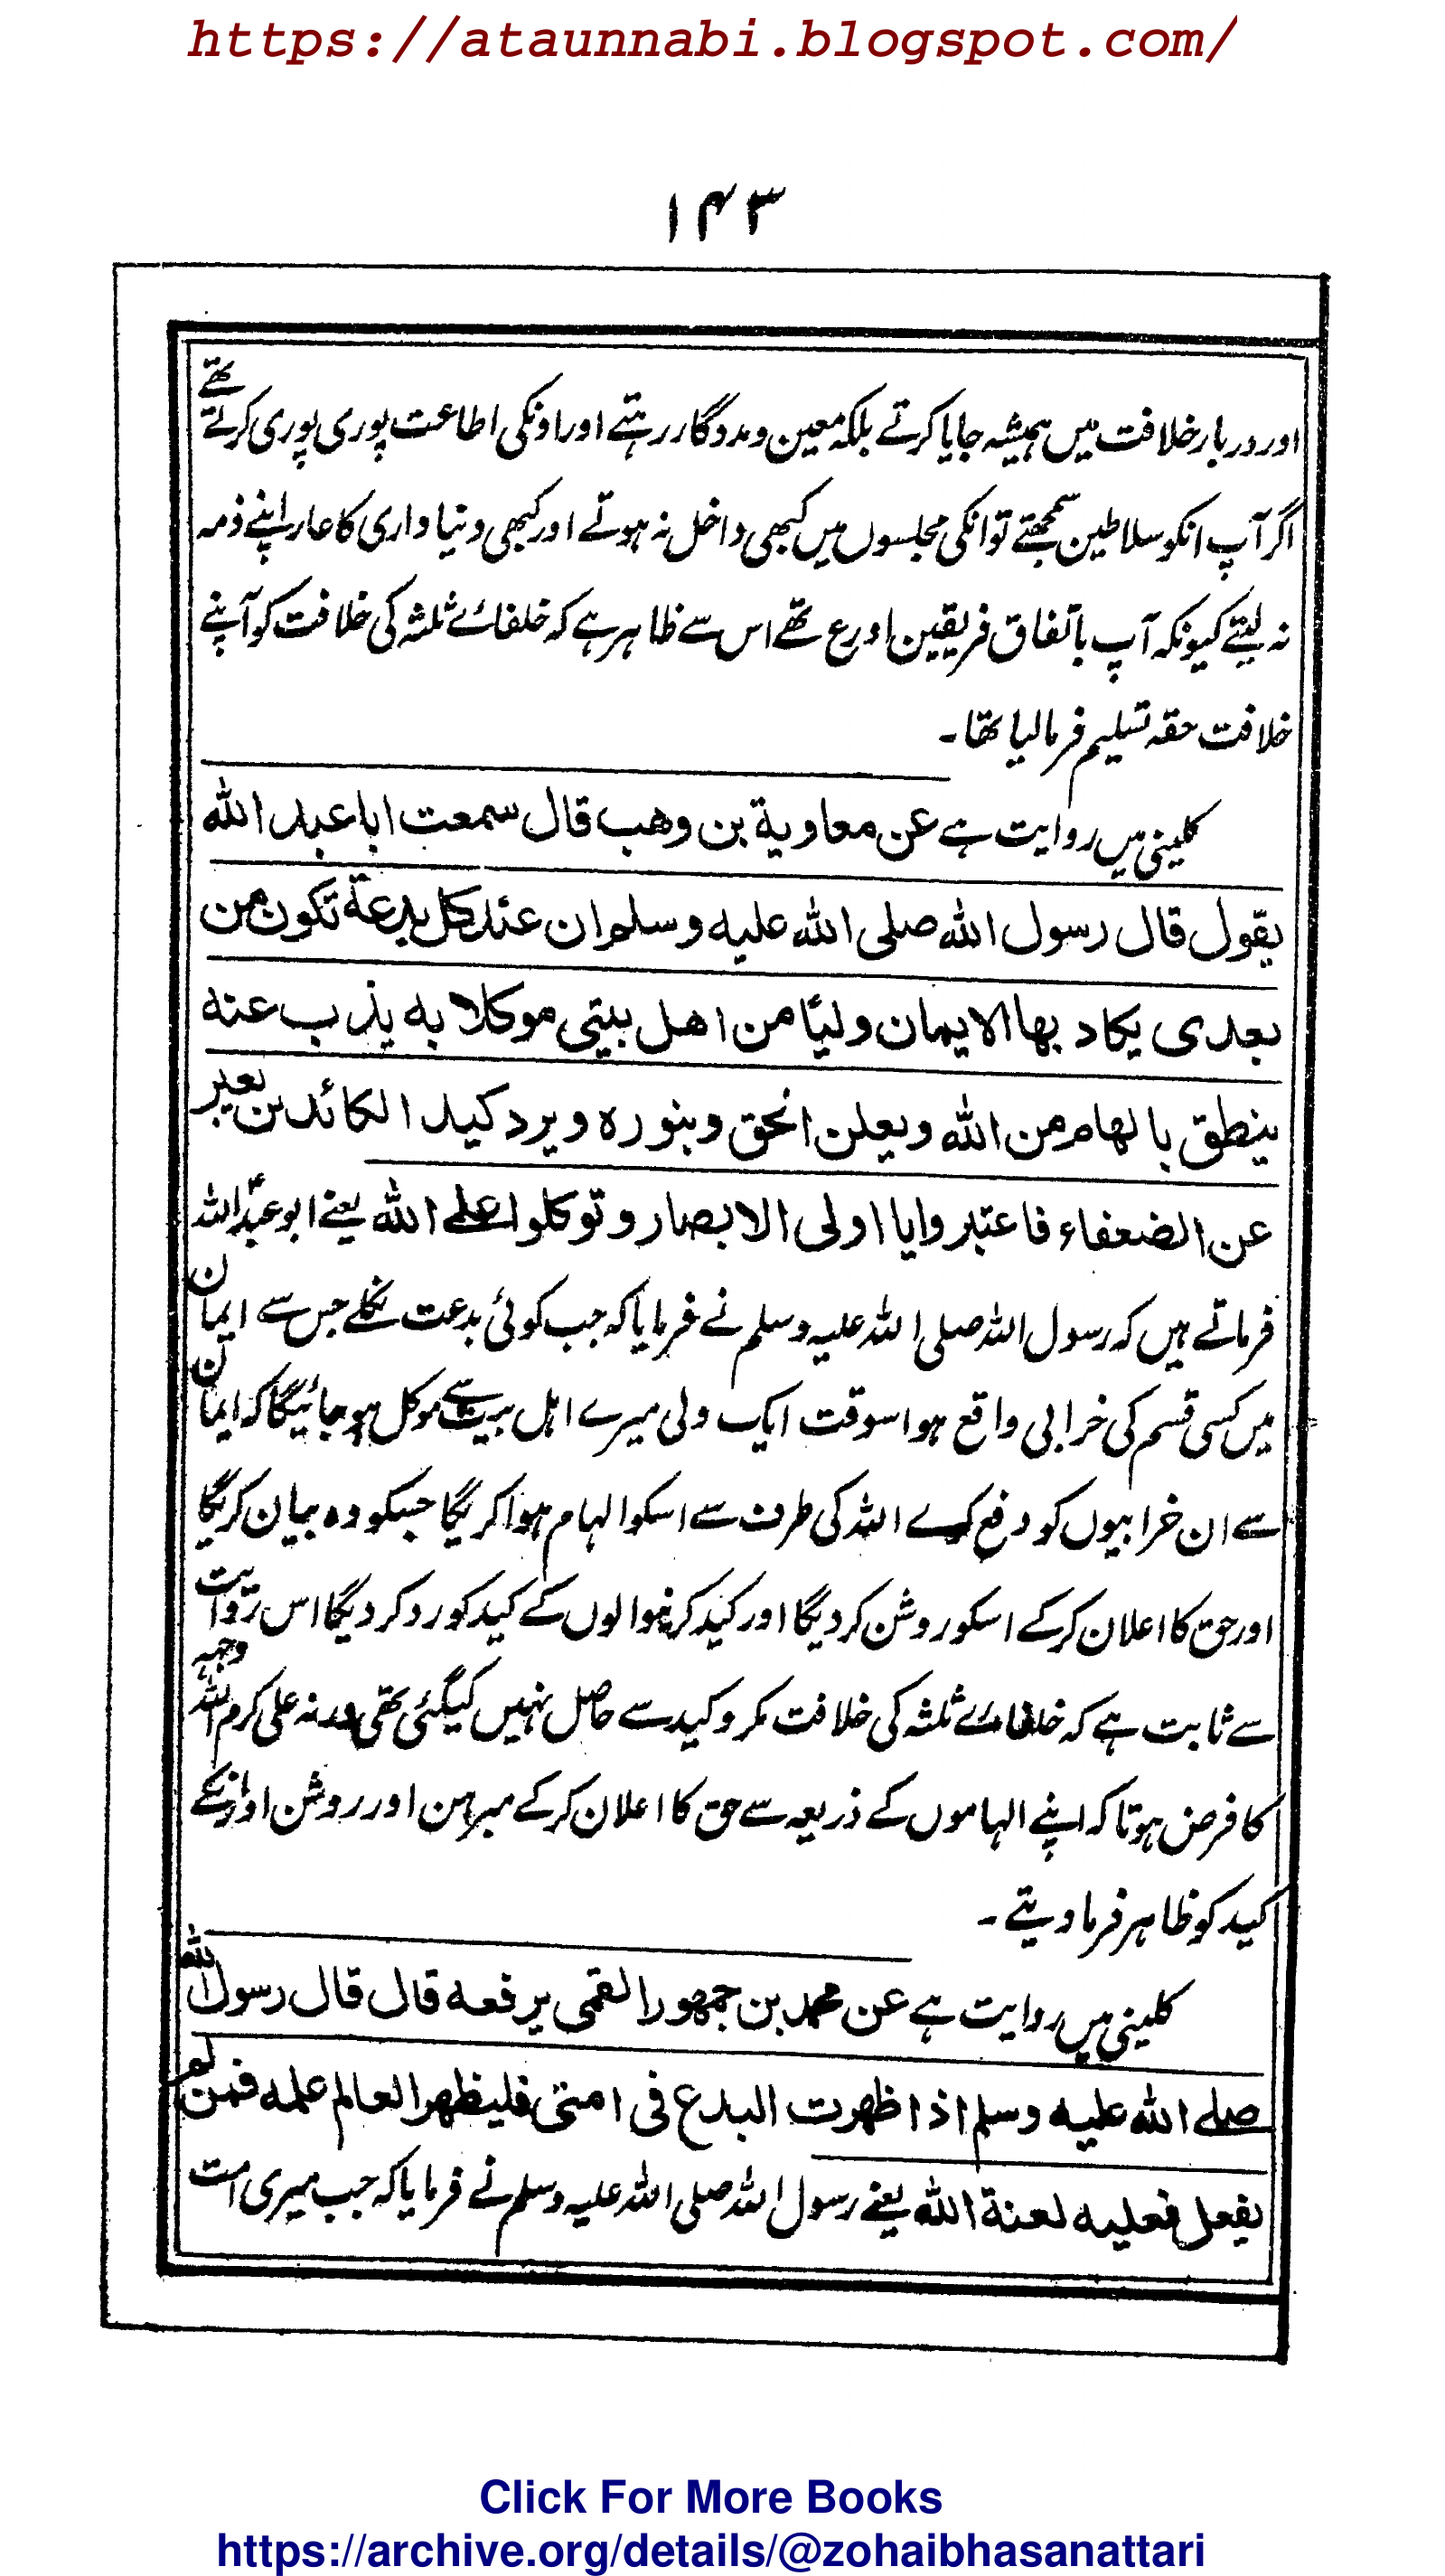 https://ataunnabi.blogspot.com/
۱۴۳
اور دربار خلافت میں ہمیشہ جایا کرتے بلکہ معین و مددگار رہتے اور اونکی اطاعت پوری پوری کرتے تھے
اگر آپ انکو سلاطین سمجھتے تو انکی مجلسوں میں کبھی داخل نہ ہوتے اور کبھی دنیا داری کا عار اپنے ذمہ
نہ لیتے کیونکہ آپ باتفاق فریقین اورع تھے اس سے ظاہر ہے کہ خلفائے ثلثہ کی خلافت کو آپنے
خلافت حقہ تسلیم فرما لیا تھا۔
کلینی میں روایت ہے عن معاویة بن وهب قال سمعت ابا عبد الله
یقول قال رسول الله صلی الله علیه وسلم ان عند کل بدعة تکون من
بعدی یکاد بها الایمان ولیًا من اهل بیتی موکلا به یذب عنه
ینطق بالهام من الله ویعلن الحق وینوره ویرد کید الکائدین یعبر
عن الضعفاء فاعتبروا یا اولی الابصار وتوکلوا علی الله یعنے ابو عبد اللہ
فرماتے ہیں کہ رسول اللہ صلی اللہ علیہ وسلم نے فرمایا کہ جب کوئی بدعت نکلے جس سے ایمان
میں کسی قسم کی خرابی واقع ہو اسوقت ایک ولی میرے اہل بیت سے موکل ہو جائیگا کہ ایمان
سے ان خرابیوں کو دفع کرے اللہ کی طرف سے اسکو الہام ہوا کریگا جسکو وہ بیان کریگا
اور حق کا اعلان کر کے اسکو روشن کر دیگا اور کید کرنیوالوں کے کید کو رد کر دیگا اس روایت
سے ثابت ہے کہ خلفائے ثلثہ کی خلافت مکر و کید سے حاصل نہیں کیگئی تھی ورنہ علی کرم اللہ وجہہ
کا فرض ہوتا کہ اپنے الہاموں کے ذریعہ سے حق کا اعلان کر کے مبرہن اور روشن اور اونکے
کید کو ظاہر فرما دیتے۔
کلینی میں روایت ہے عن محمد بن جمهور القمی یرفعه قال قال رسول الله
صلے الله علیه وسلم اذا ظهرت البدع فی امتی فلیظهر العالم علمه فمن لم
یفعل فعلیه لعنة الله یعنے رسول اللہ صلی اللہ علیہ وسلم نے فرمایا کہ جب میری امت
Click For More Books
https://archive.org/details/@zohaibhasanattari